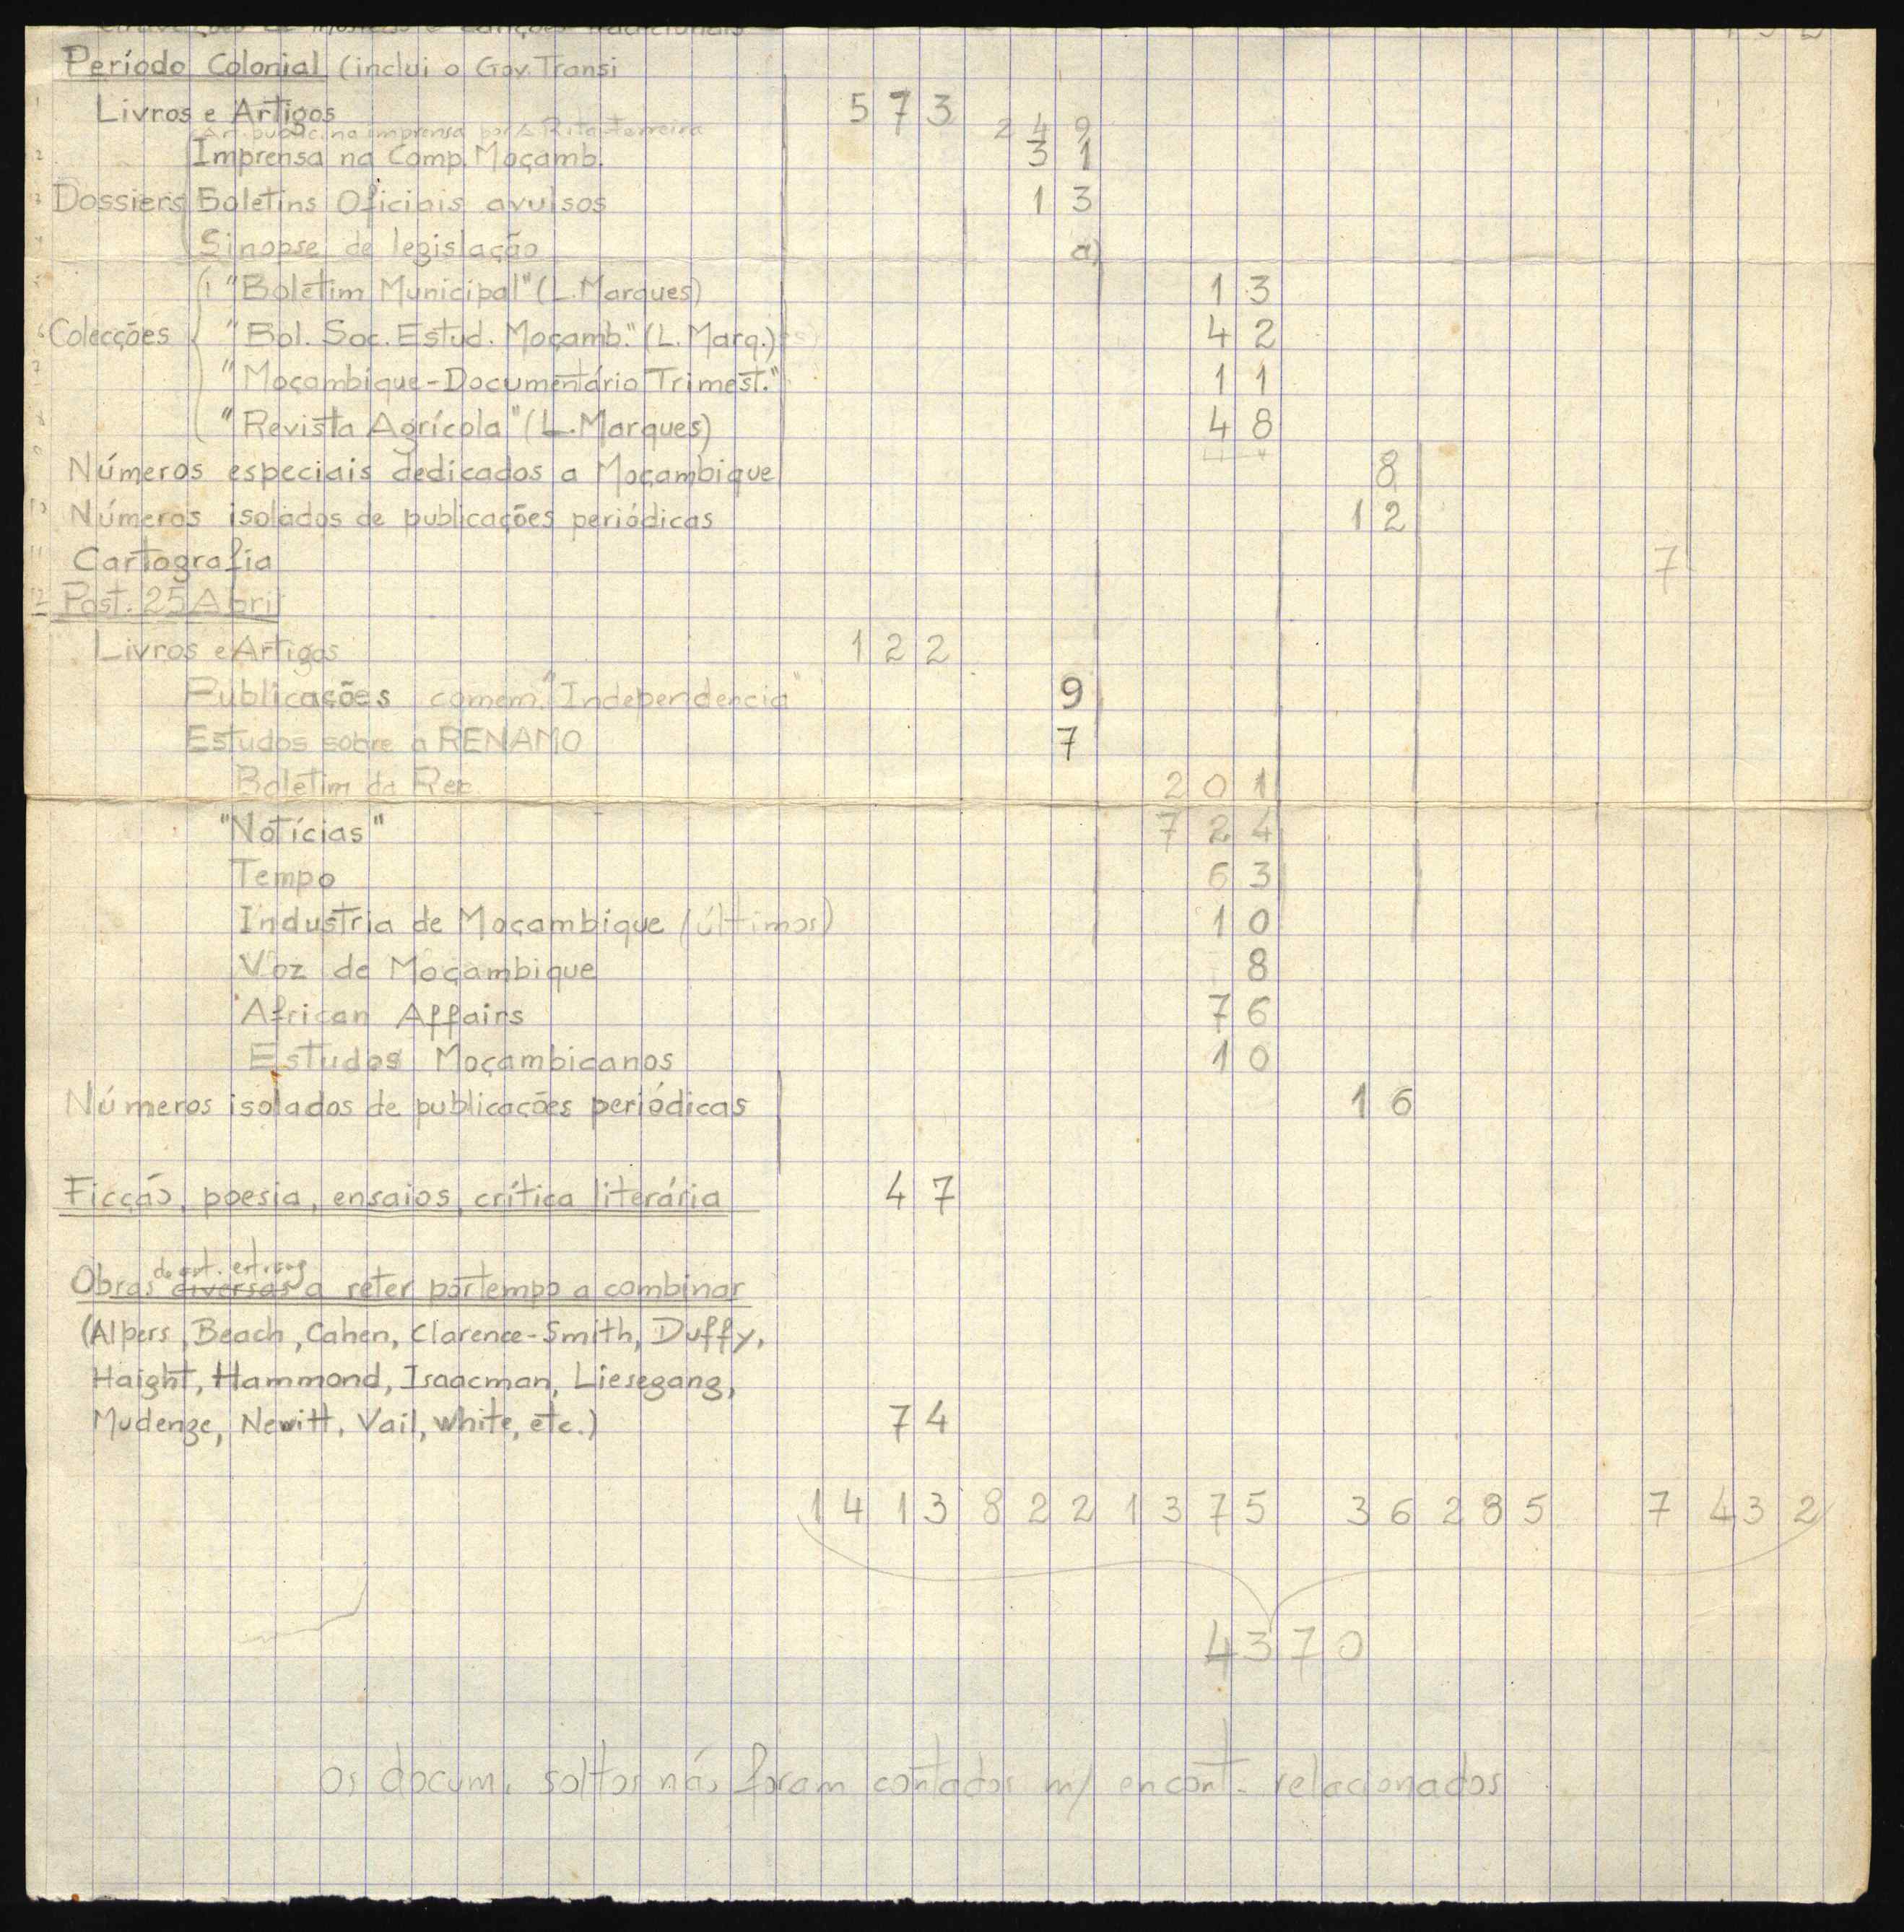 gravações de músicas e canções tradicionais
Período Colonial (inclui o Gov. Transi
1 Livros e Artigos 573
Art. public. na imprensa por A. Rita-Ferreira 249
2 Imprensa na Comp. Moçamb. 31
3 Dossiers Boletins Oficiais avulsos 13
4 Sinopse de legislação a)
5 "Boletim Municipal" (L. Marques) 13
6 Colecções "Bol. Soc. Estud. Moçamb." (L. Marq.) 42
7 "Moçambique - Documentário Trimest." 11
8 "Revista Agrícola" (L. Marques) 48
9 Números especiais dedicados a Moçambique 8
10 Números isolados de publicações periódicas 12
11 Cartografia 7
12 Post. 25 Abril
Livros e Artigos 122
Publicações comem. "Independencia" 9
Estudos sobre a RENAMO 7
Boletim da Rep. 201
"Notícias" 724
Tempo 63
Industria de Moçambique (últimos) 10
Voz de Moçambique 8
African Affairs 76
Estudos Moçambicanos 10
Números isolados de publicações periódicas 16
Ficção, poesia, ensaios, crítica literária 47
de aut. estrang
Obras diversas a reter por tempo a combinar
(Alpers, Beach, Cahen, Clarence-Smith, Duffy,
Haight, Hammond, Isaacman, Liesegang,
Mudenge, Newitt, Vail, White, etc.) 74
1413 822 1375 36 285 7 432
4370
Os docum. soltos não foram contados m/ encont. relacionados